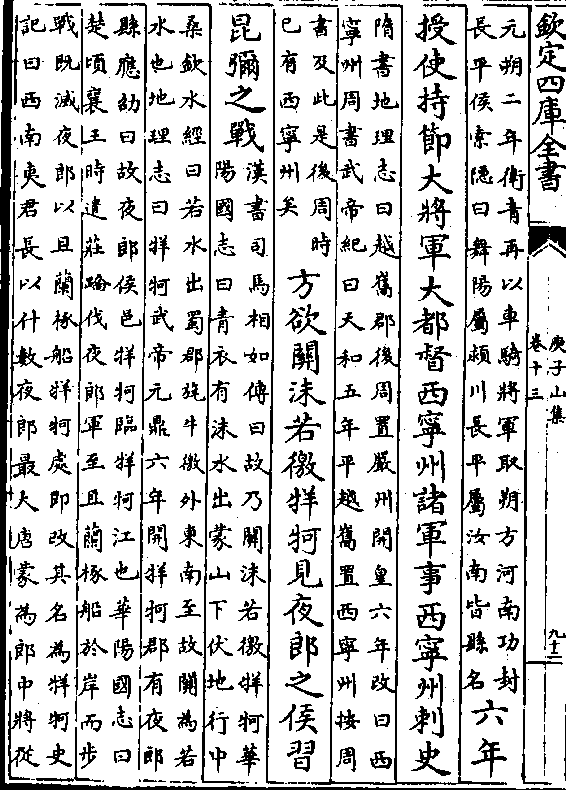 欽定四庫全書
庾子山集
卷十三
九十二
元朔二年衛青再以車騎將軍取朔方河南功封
長平侯索隱曰舞陽屬潁川長平屬汝南皆縣名
六年
授使持節大將軍大都督西寧州諸軍事西寧州刺史
隋書地理志曰越嶲郡後周置嚴州開皇六年改曰西
寧州周書武帝紀曰天和五年平越嶲置西寧州按周
書及此是後周時
已有西寧州矣
方欲關沬若徼牂牁見夜郎之侯習
昆彌之戰
漢書司馬相如傳曰故乃關沬若徼牂牁華
陽國志曰青衣有沬水出蒙山下伏地行中
桑欽水經曰若水出蜀郡旄牛徼外東南至故關為若
水也地理志曰牂牁武帝元鼎六年開牂牁郡有夜郎
縣應劭曰故夜郎侯邑牂牁臨牂牁江也華陽國志曰
楚頃襄王時遣莊蹻伐夜郎軍至且蘭椓船於岸而步
戰既滅夜郎以且蘭椓船牂牁處即改其名為牂牁史
記曰西南夷君長以什數夜郎最大唐蒙為郎中將從